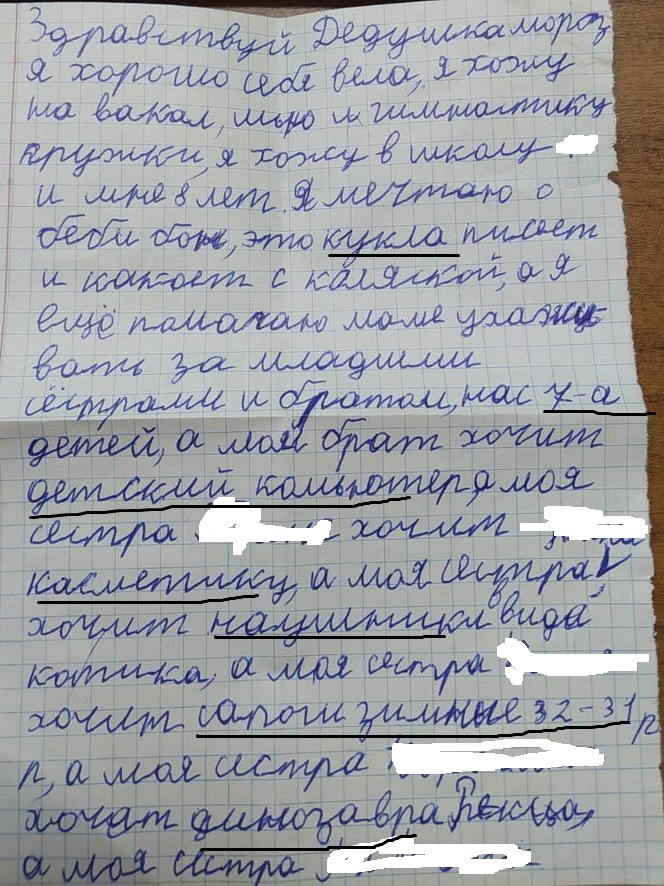 Здравствуй Дедушка мороз
я хорошо себя вела, я хожу
на вакал, и гимнастику
кружки, я хожу в школу
и мне 8 лет. Я мечтаю о
беби бон, это кукла писает
и какает с коляской, а я
ещё помагаю маме ухажи-
вать за младшими
сёстрами и братом, нас 7-а
детей, а мой брат хочит
детский компютер, а моя
сестра хочит
касметику, а моя сестра
хочит наушники вида
котика, а моя сестра
хочит сапоги зимные 32-31 р
р, а моя сестра
хочат динозавра Рекса,
а моя сестра